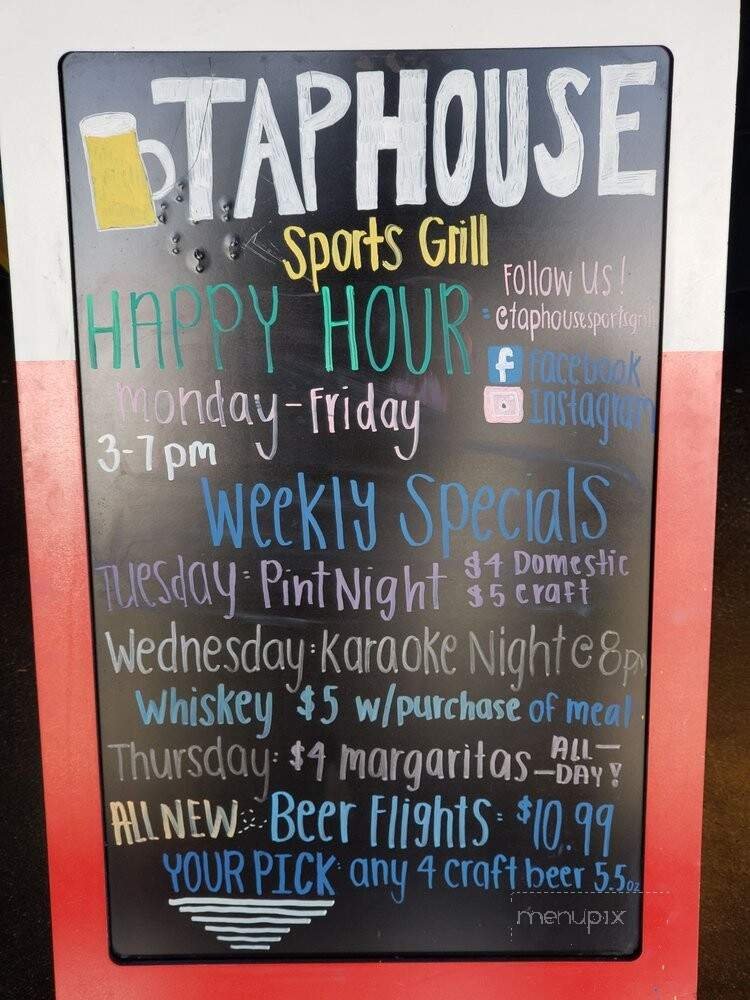 TAPHOUSE
Sports Grill
Follow Us!
HAPPY HOUR
@taphousesportsgrill
f Facebook
Monday-Friday
Instagram
3-7pm
Weekly Specials
Tuesday: Pint Night $4 Domestic
$5 craft
Wednesday: Karaoke Night @ 8pm
Whiskey $5 w/purchase of meal
Thursday: $4 margaritas ALL-
-DAY!
ALL NEW: Beer Flights: $10.99
YOUR PICK: any 4 craft beer 5.5oz
menupix